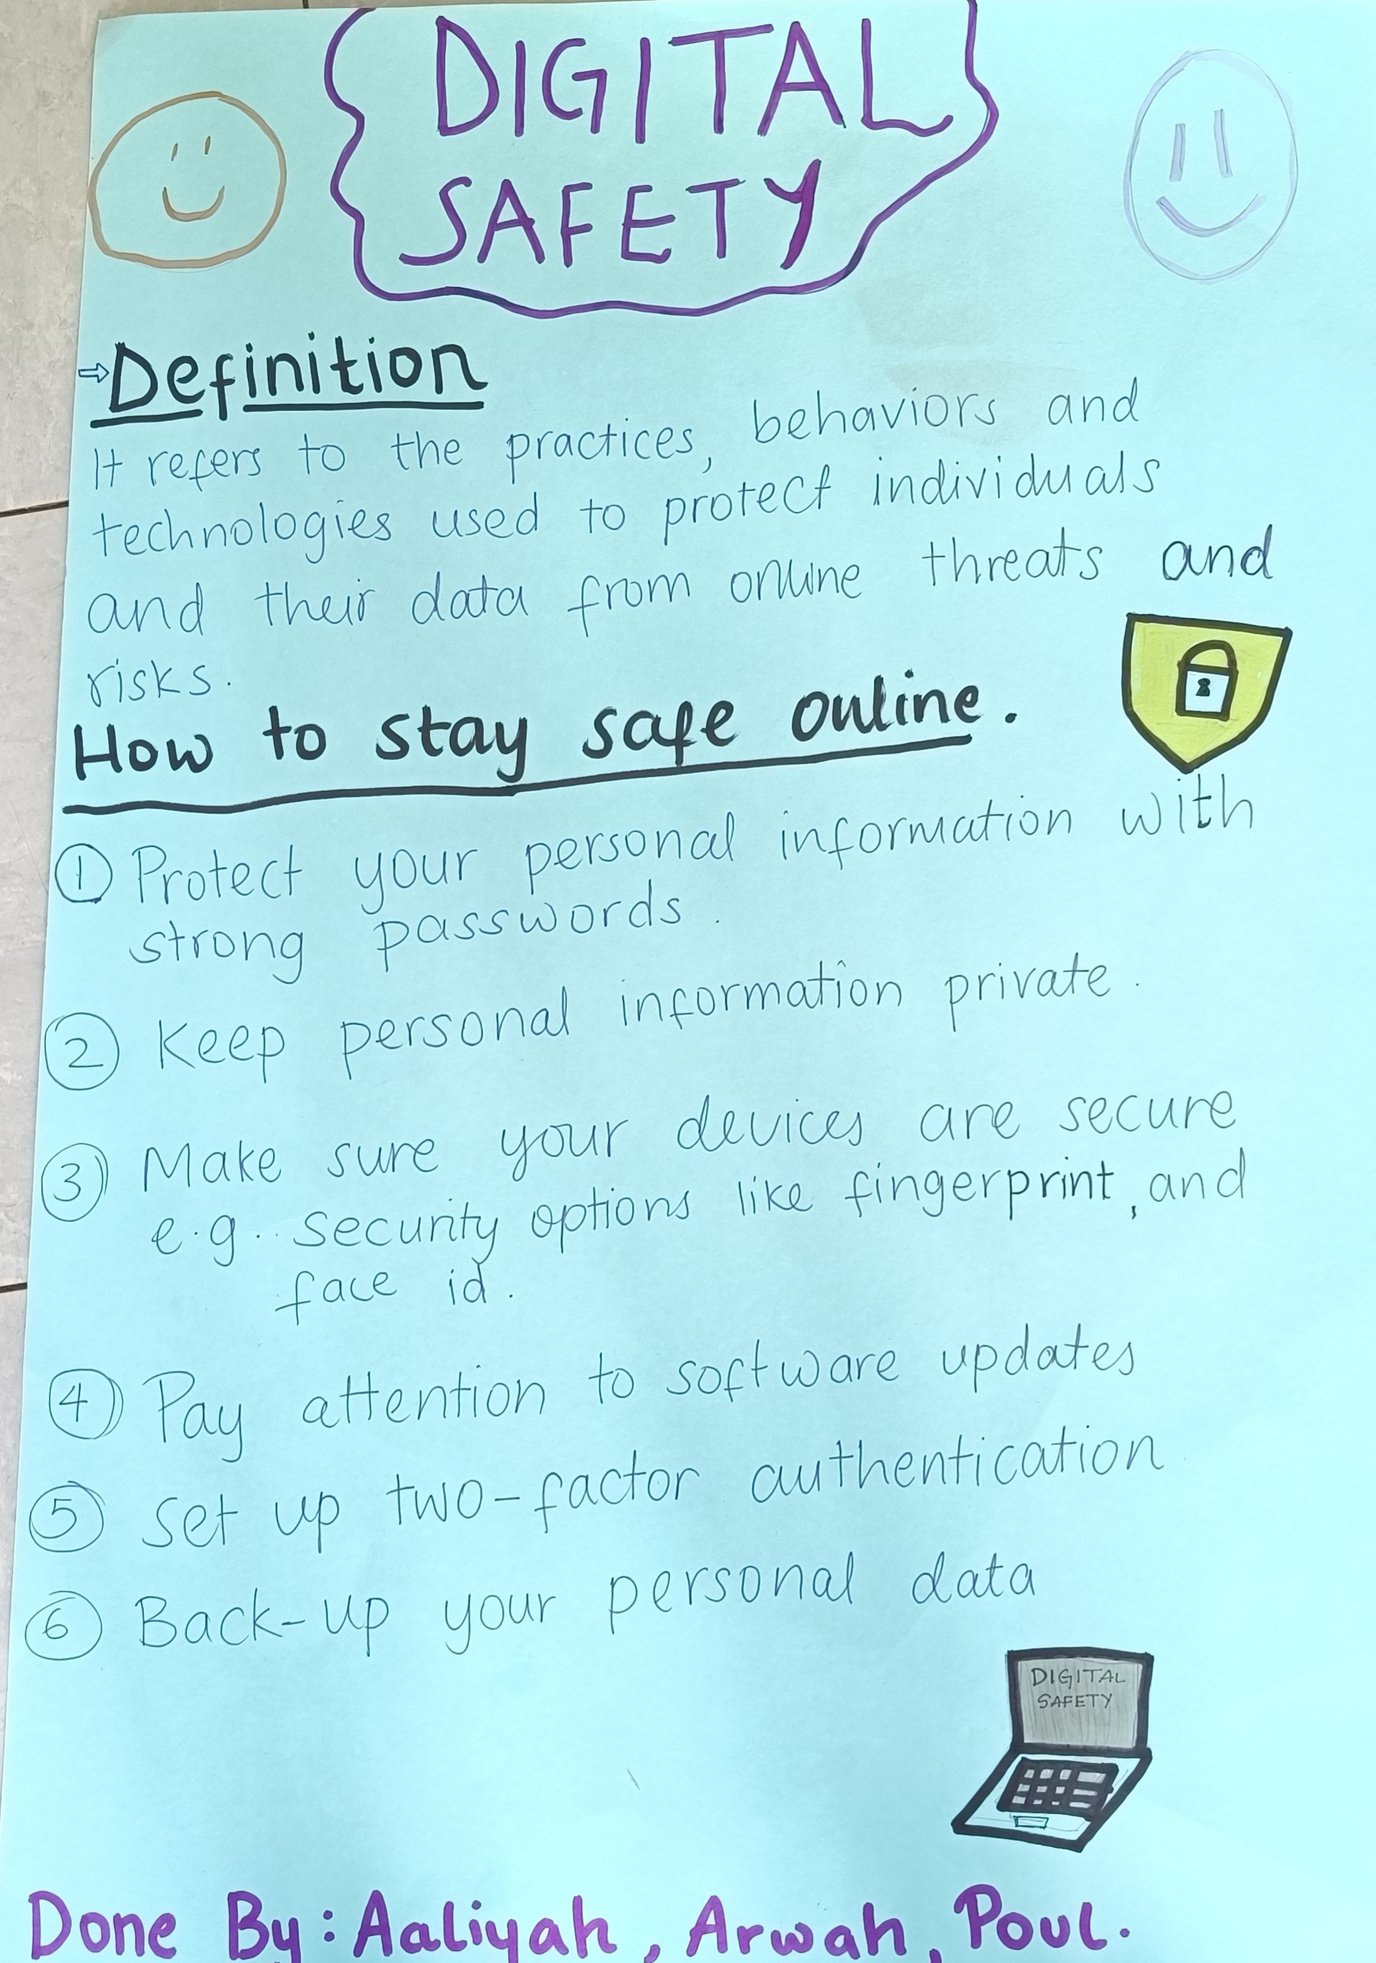 DIGITAL
SAFETY
⇨Definition
It refers to the practices, behaviors and
technologies used to protect individuals
and their data from online threats and
risks.
How to stay safe online.
① Protect your personal information with
strong passwords.
② Keep personal information private.
③ Make sure your devices are secure
e.g.. security options like fingerprint, and
face id.
④ Pay attention to software updates
⑤ Set up two-factor authentication
⑥ Back-up your personal data
DIGITAL
SAFETY
Done By: Aaliyah, Arwah, Poul.